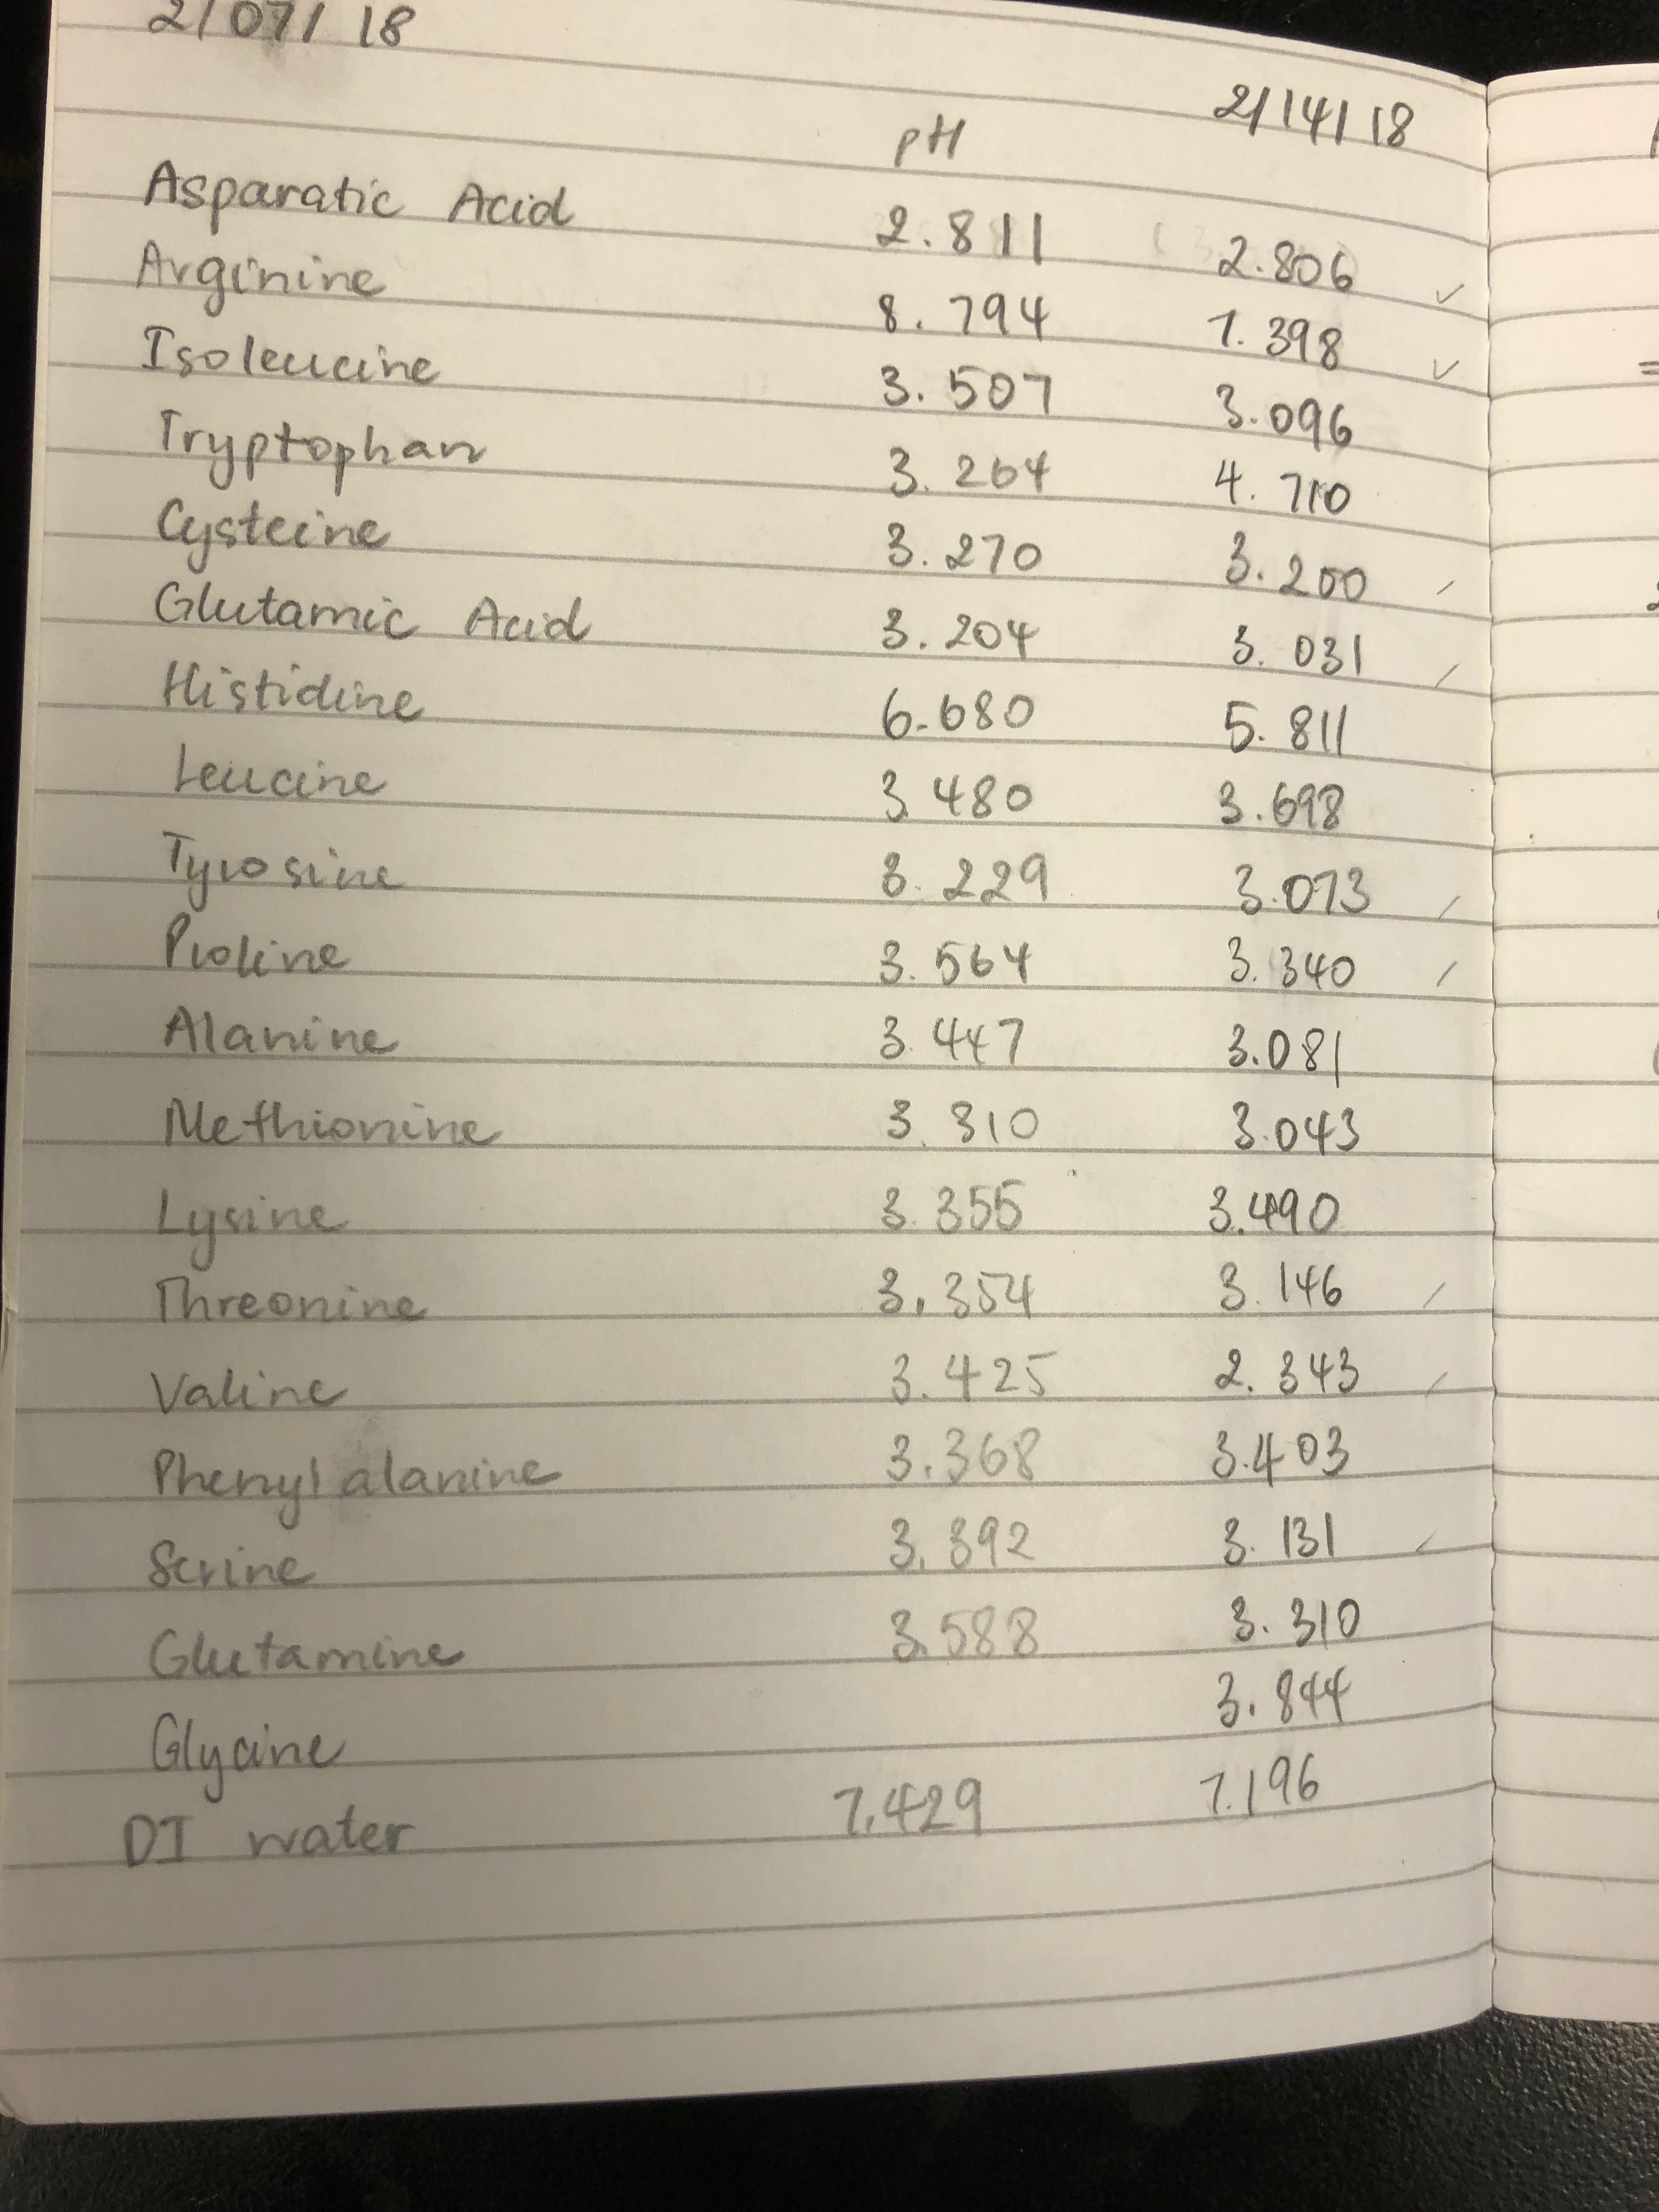 2/07/18
pH 2/14/18
Asparatic Acid 2.811 2.806 ✓
Arginine 8.794 7.398 ✓
Isoleucine 3.507 3.096
Tryptophan 3.264 4.710
Cysteine 3.270 3.200 /
Glutamic Acid 3.204 3.031 /
Histidine 6.680 5.811
Leucine 3.480 3.698
Tyrosine 3.229 3.073 /
Proline 3.564 3.340 /
Alanine 3.447 3.081
Methionine 3.310 3.043
Lysine 3.355 3.490
Threonine 3.354 3.146 /
Valine 3.425 2.343 /
Phenylalanine 3.368 3.403
Serine 3.392 3.131 /
Glutamine 3.588 3.310
Glycine 3.844
DI water 7.429 7.196